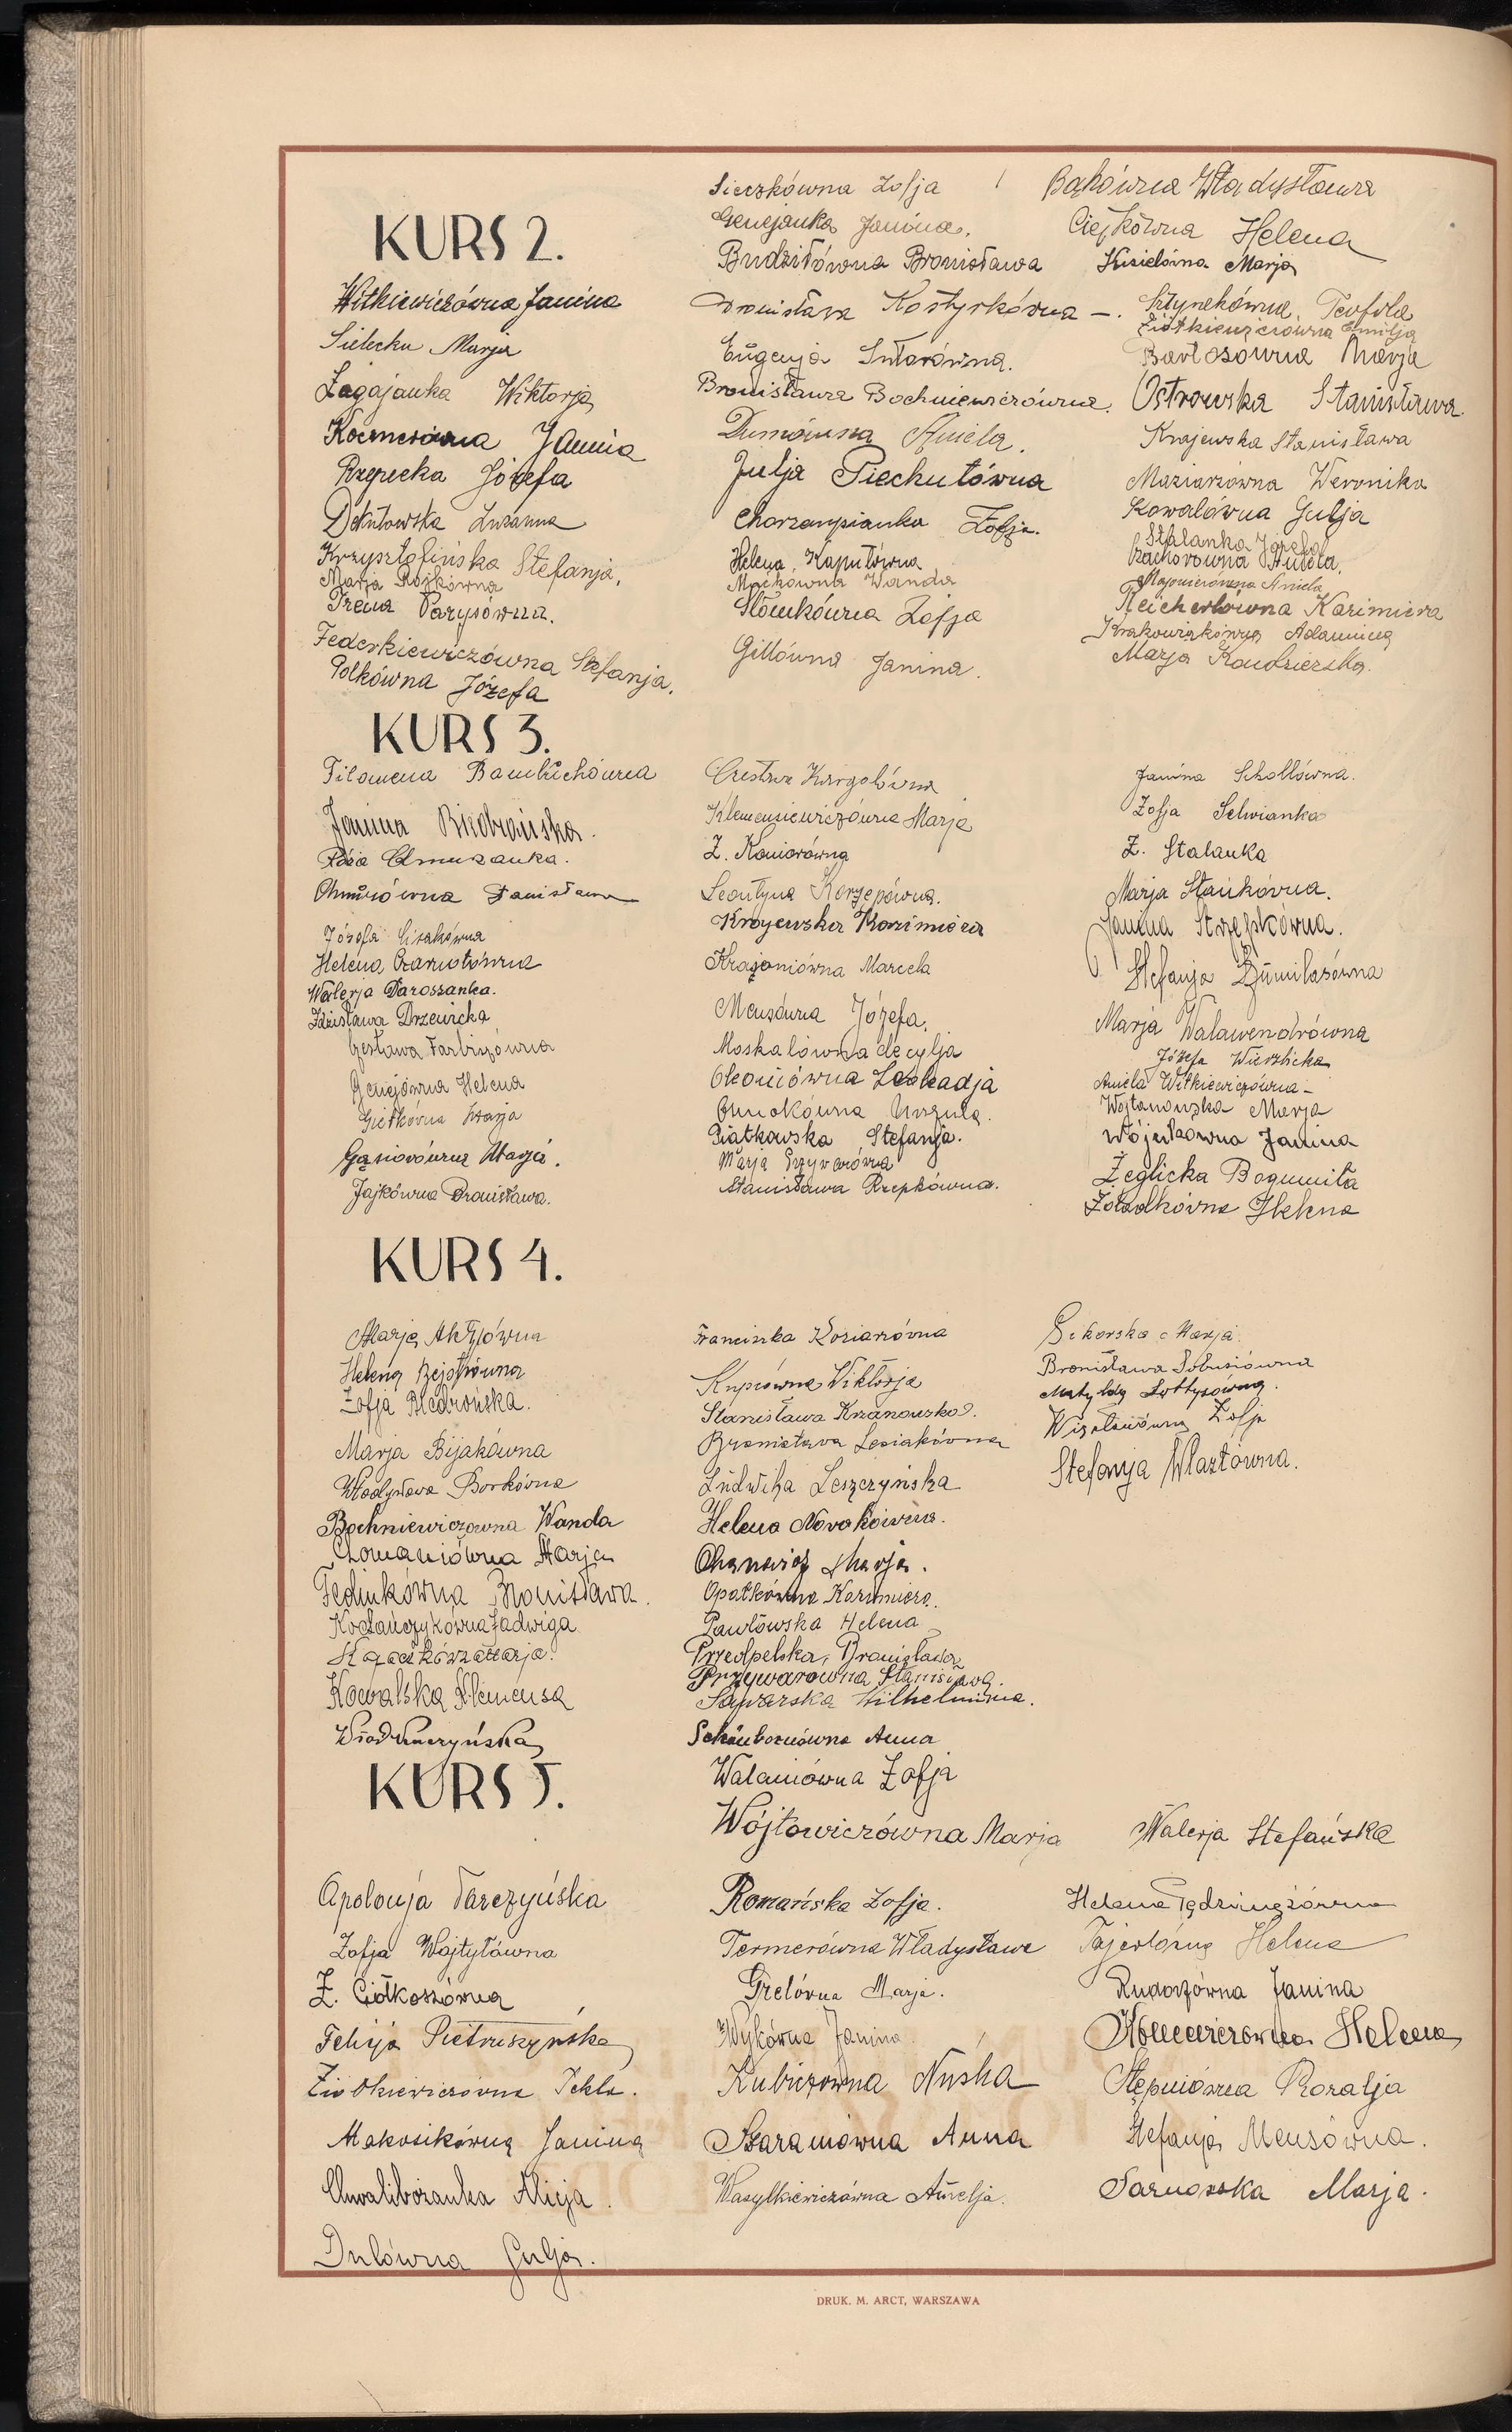 KURS 2.
Witkiewiczówna Janina
Sielecka Marja
Zagajanka Wiktorja
Janina
Rzepecka Józefa
Dekutowska Zuzanna
Krzysztofińska Stefanja.
Marja Rojkówna
Irena Parysówna.
Federkiewiczówna Stefanja.
Polkówna Józefa
Sieczkówna Zofja
Genejanka Janina.
Budziłówna Bronisława
Bronisława Kostyrkówna —.
Eugenja
Bronisława Bochniewiczówna.
Dumówna Aniela.
Julja Piechutówna
Zofja.
Helena Kaputówna
Maćkówna Wanda
Słomkówna Zofja
Gillówna Janina.
Bąkówna Władysława
Ciężkówna Helena
Kisielówna Marja
Teofila
Ziółkiewiczówna Emilja
Bartosówna Marja
Ostrowska Stanisława.
Krajewska Stanisława
Maziarzówna Weronika
Kowalówna Julja
Stalanka Józefa
Czachorówna Aniela.
Aniela
Reichertówna Kazimiera
Krakowiakówna Adamina
Marja
KURS 3.
Filomena
Janina Biedrońska.
Róża
Stanisława
Józefa Cisakówna
Helena Czarnotówna
Walerja Daroszanka.
Zdzisława Drzewicka
Czesława Farbiszówna
Genejówna Helena
Giełkówna Marja
Gąsiorówna Marja.
Jajkówna Bronisława.
Czesława Kargolówna
Klemensiewiczówna Marja
Z. Koniorówna
Leontyna Korzepówna.
Krajewska Kazimiera
Krajaniówna Marcela
Mensówna Józefa.
Moskalówna Cecylja
Okoniówna Leokadja
Urszula.
Piątkowska Stefanja.
Marja Przywarówna
Stanisława Rzepkówna.
Janina Schollówna.
Zofja Selwianka
Z. Stalanka
Marja Stańkówna.
Janina Strzępkówna.
Stefanja Szumilasówna
Marja Walawendrówna
Józefa Wierzbicka
Aniela Witkiewiczówna –
Wojtanowska Marja
Wójcikówna Janina
Żeglicka Bogumiła
Żołądkówna Helena
KURS 4.
Marja
Helena
Zofja Biedrońska.
Marja Bijakówna
Władysława Borkówna
Bochniewiczówna Wanda
Marja
Fediukówna Bronisława.
Kołtańczykówna Jadwiga
Marja.
Kowalska Klemensa
Franciszka Koziarówna
Kuprówna Wiktorja
Stanisława Krzanowska.
Bronisława Lesiakówna
Ludwika Leszczyńska
Helena Nowakówna.
Chanowicz Marja.
Opatkówna Kazimiera.
Pawłowska Helena
Przedpełska Bronisława
Przywarówna Stanisława.
Wilhelmina.
Schönbornówna Anna
Walaniówna Zofja
Wójtowiczówna Marja
Sikorska Marja.
Bronisława Sobusiówna
Matylda Sołtysówna.
Zofja
Stefanja Wlaztówna.
KURS 5.
Apolonja Tarczyńska
Zofja Wojtyłówna
Z. Ciołkoszówna
Felicja Pietruszyńska
Ziółkiewiczówna Tekla.
Makosikówna Janina
Chwalibożanka Alicja.
Dulówna Julja.
Romańska Zofja.
Termerówna Władysława
Grelówna Marja.
Wykówna Janina.
Kubiczówna Nuśka
Szaraniówna Anna
Wasylkiewiczówna Aurelja.
Walerja Stefańska
Helena
Helena
Rudoszówna Janina
Helena
Stępniówna Rozalja
Stefanja Mensówna.
Sarnowska Marja.
DRUK. M. ARCT, WARSZAWA